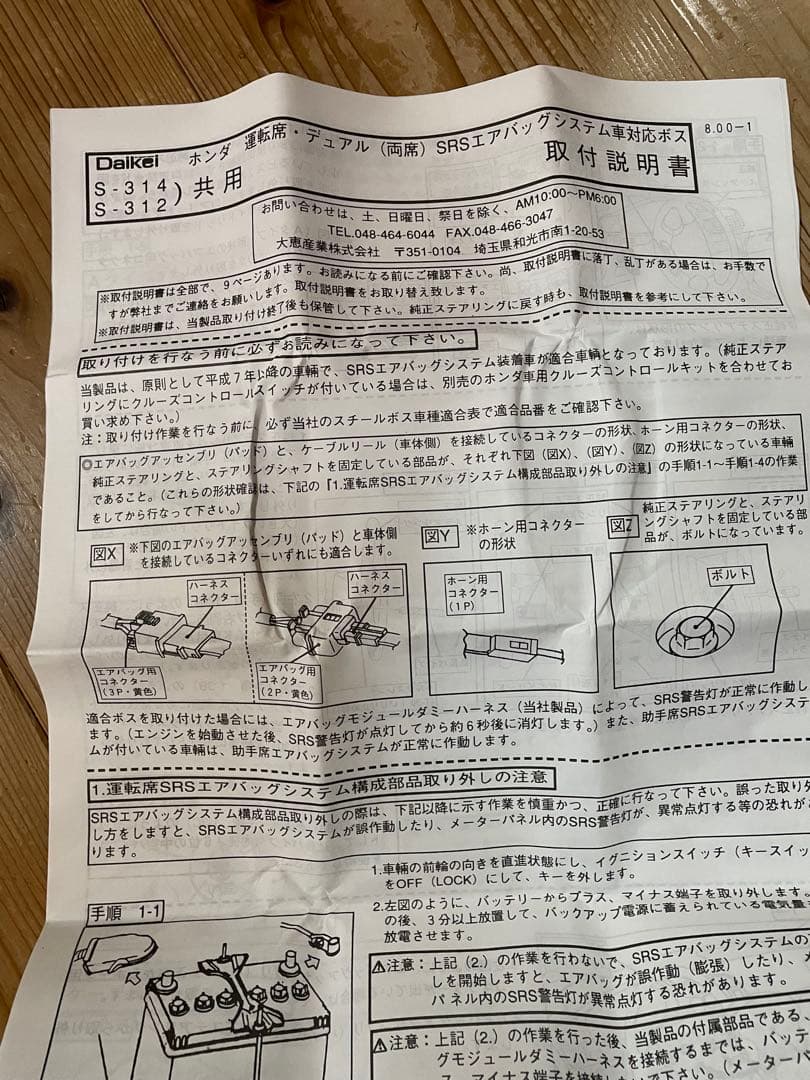 8.00-1
Daikei ホンダ 運転席・デュアル（両席）SRSエアバッグシステム車対応ボス
S-314
S-312
)共用
取付説明書
お問い合わせは、土、日曜日、祭日を除く、AM10:00～PM6:00
TEL.048-464-6044 FAX.048-466-3047
大恵産業株式会社 〒351-0104 埼玉県和光市南1-20-53
※取付説明書は全部で、9ページあります。お読みになる前にご確認下さい。尚、取付説明書に落丁、乱丁がある場合は、お手数で
すが弊社までご連絡をお願いします。取付説明書をお取り替え致します。
※取付説明書は、当製品取り付け終了後も保管して下さい。純正ステアリングに戻す時も、取付説明書を参考にして下さい。
取り付けを行なう前に必ずお読みになって下さい。
当製品は、原則として平成7年以降の車輌で、SRSエアバッグシステム装着車が適合車輌となっております。（純正ステア
リングにクルーズコントロールスイッチが付いている場合は、別売のホンダ車用クルーズコントロールキットを合わせてお
買い求め下さい。）
注：取り付け作業を行なう前に、必ず当社のスチールボス車種適合表で適合品番をご確認下さい。
◎エアバッグアッセンブリ（パッド）と、ケーブルリール（車体側）を接続しているコネクターの形状、ホーン用コネクターの形状、
純正ステアリングと、ステアリングシャフトを固定している部品が、それぞれ下図（図X）、（図Y）、（図Z）の形状になっている車輌
であること。（これらの形状確認は、下記の『1.運転席SRSエアバッグシステム構成部品取り外しの注意』の手順1-1～手順1-4の作業
をしてから行なって下さい。）
図X
※下図のエアバッグアッセンブリ（パッド）と車体側
を接続しているコネクターいずれにも適合します。
図Y
※ホーン用コネクター
の形状
図Z
純正ステアリングと、ステアリ
ングシャフトを固定している部
品が、ボルトになっています。
ハーネス
コネクター
エアバッグ用
コネクター
（3P・黄色）
ハーネス
コネクター
エアバッグ用
コネクター
（2P・黄色）
ホーン用
コネクター
（1P）
ボルト
適合ボスを取り付けた場合には、エアバッグモジュールダミーハーネス（当社製品）によって、SRS警告灯が正常に作動し
ます。（エンジンを始動させた後、SRS警告灯が点灯してから約6秒後に消灯します。）また、助手席SRSエアバッグシステ
ムが付いている車輌は、助手席エアバッグシステムが正常に作動します。
1.運転席SRSエアバッグシステム構成部品取り外しの注意
SRSエアバッグシステム構成部品取り外しの際は、下記以降に示す作業を慎重かつ、正確に行なって下さい。誤った取り外
し方をしますと、SRSエアバッグシステムが誤作動したり、メーターパネル内のSRS警告灯が、異常点灯する等の恐れがあ
ります。
手順 1-1
1.車輌の前輪の向きを直進状態にし、イグニションスイッチ（キースイッ
をOFF（LOCK）にして、キーを外します。
2.左図のように、バッテリーからプラス、マイナス端子を取り外します。
の後、3分以上放置して、バックアップ電源に蓄えられている電気量
放電させます。
⚠注意：上記（2.）の作業を行わないで、SRSエアバッグシステムの
しを開始しますと、エアバッグが誤作動（膨張）したり、メ
パネル内のSRS警告灯が異常点灯する恐れがあります。
⚠注意：上記（2.）の作業を行った後、当製品の付属部品である、
グモジュールダミーハーネスを接続するまでは、バッテ